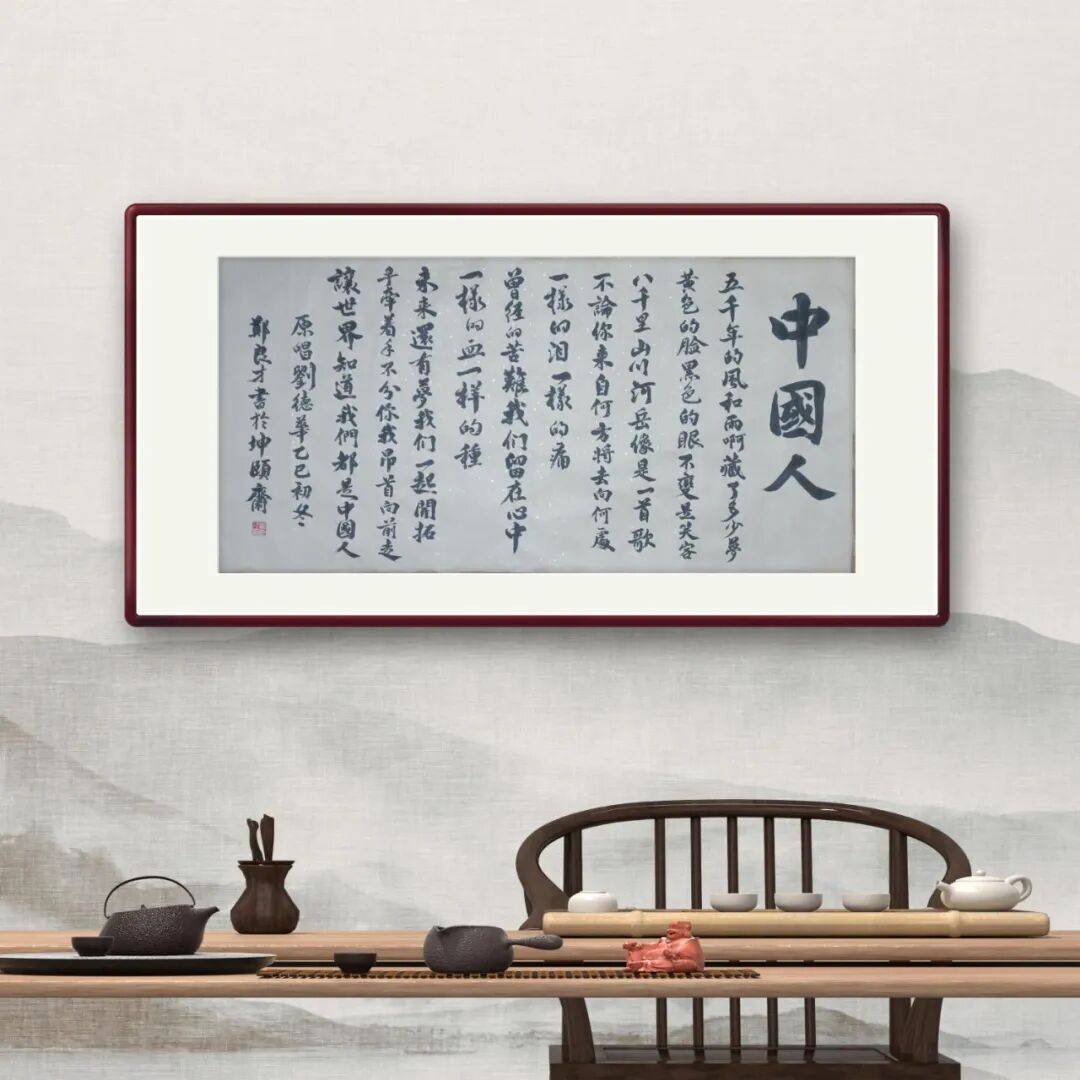 中國人
五千年的風和雨啊藏了多少夢
黃色的脸黑色的眼不變是笑容
八千里山川河岳像是一首歌
不論你来自何方将去向何處
一樣的泪一樣的痛
曾经的苦難我们留在心中
一樣的血一样的種
未来還有夢我们一起開拓
手牵着手不分你我昂首向前走
讓世界知道我們都是中国人
原唱劉德華乙巳初冬
鄭良才書於坤頤齋